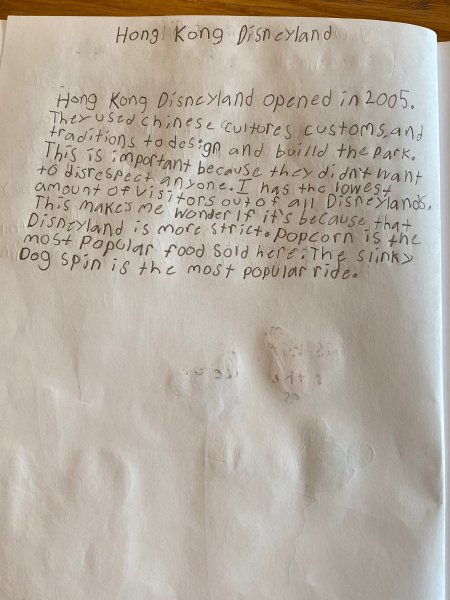 Hong Kong Disneyland
Hong Kong Disneyland opened in 2005.
They used chinese cultures customs, and
traditions to design and buiild the park.
This is important because they didn't want
to disrespect anyone. I has the lowest
amount of visitors out of all Disneylands.
This makes me wonder if it's because that
Disneyland is more strict. Popcorn is the
most popular food sold here. The slinky
Dog spin is the most popular ride.